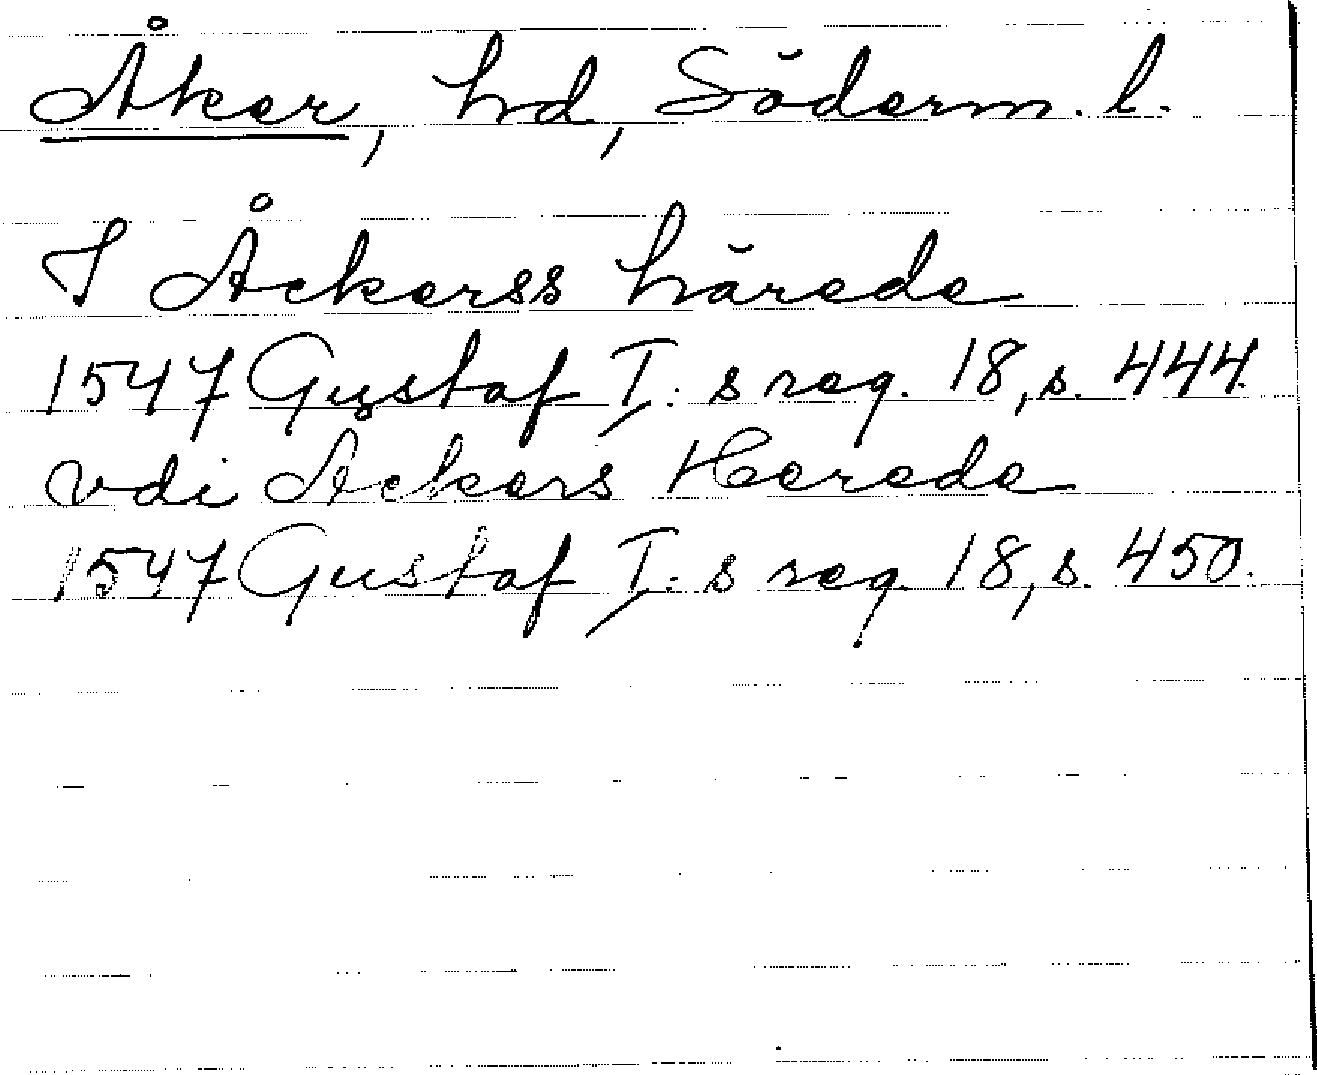 Åker, hd, Söderm. l.
I Åckerss härede
1547 Gustaf I:s reg. 18, s. 444.
vdi Ackers Herede
1547 Gustaf I:s reg. 18, s. 450.